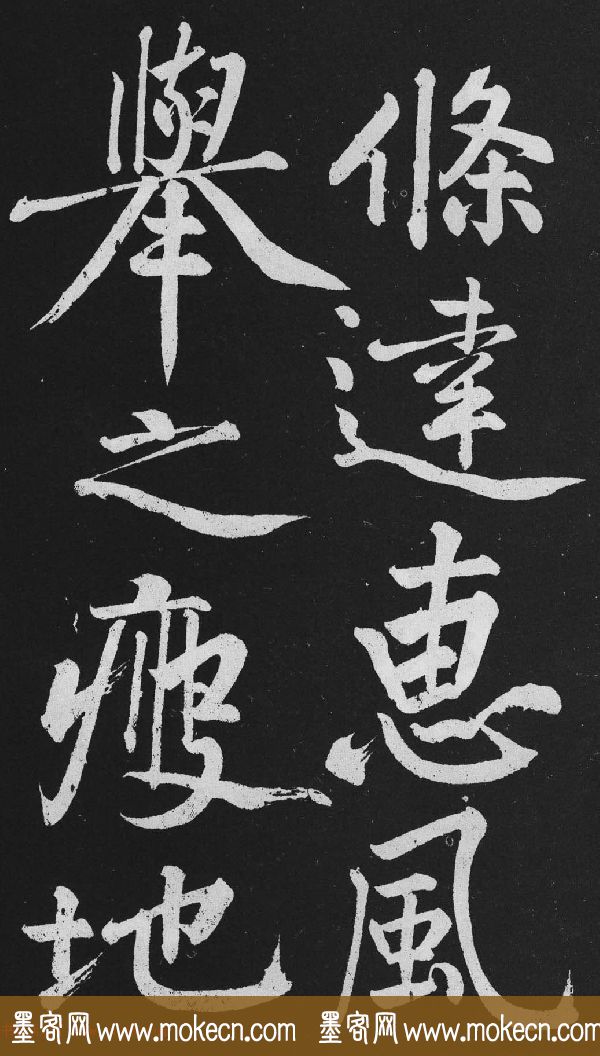 條達惠風
舉之疲地
墨客网 www.mokecn.com 墨客网 www.mokecn.com